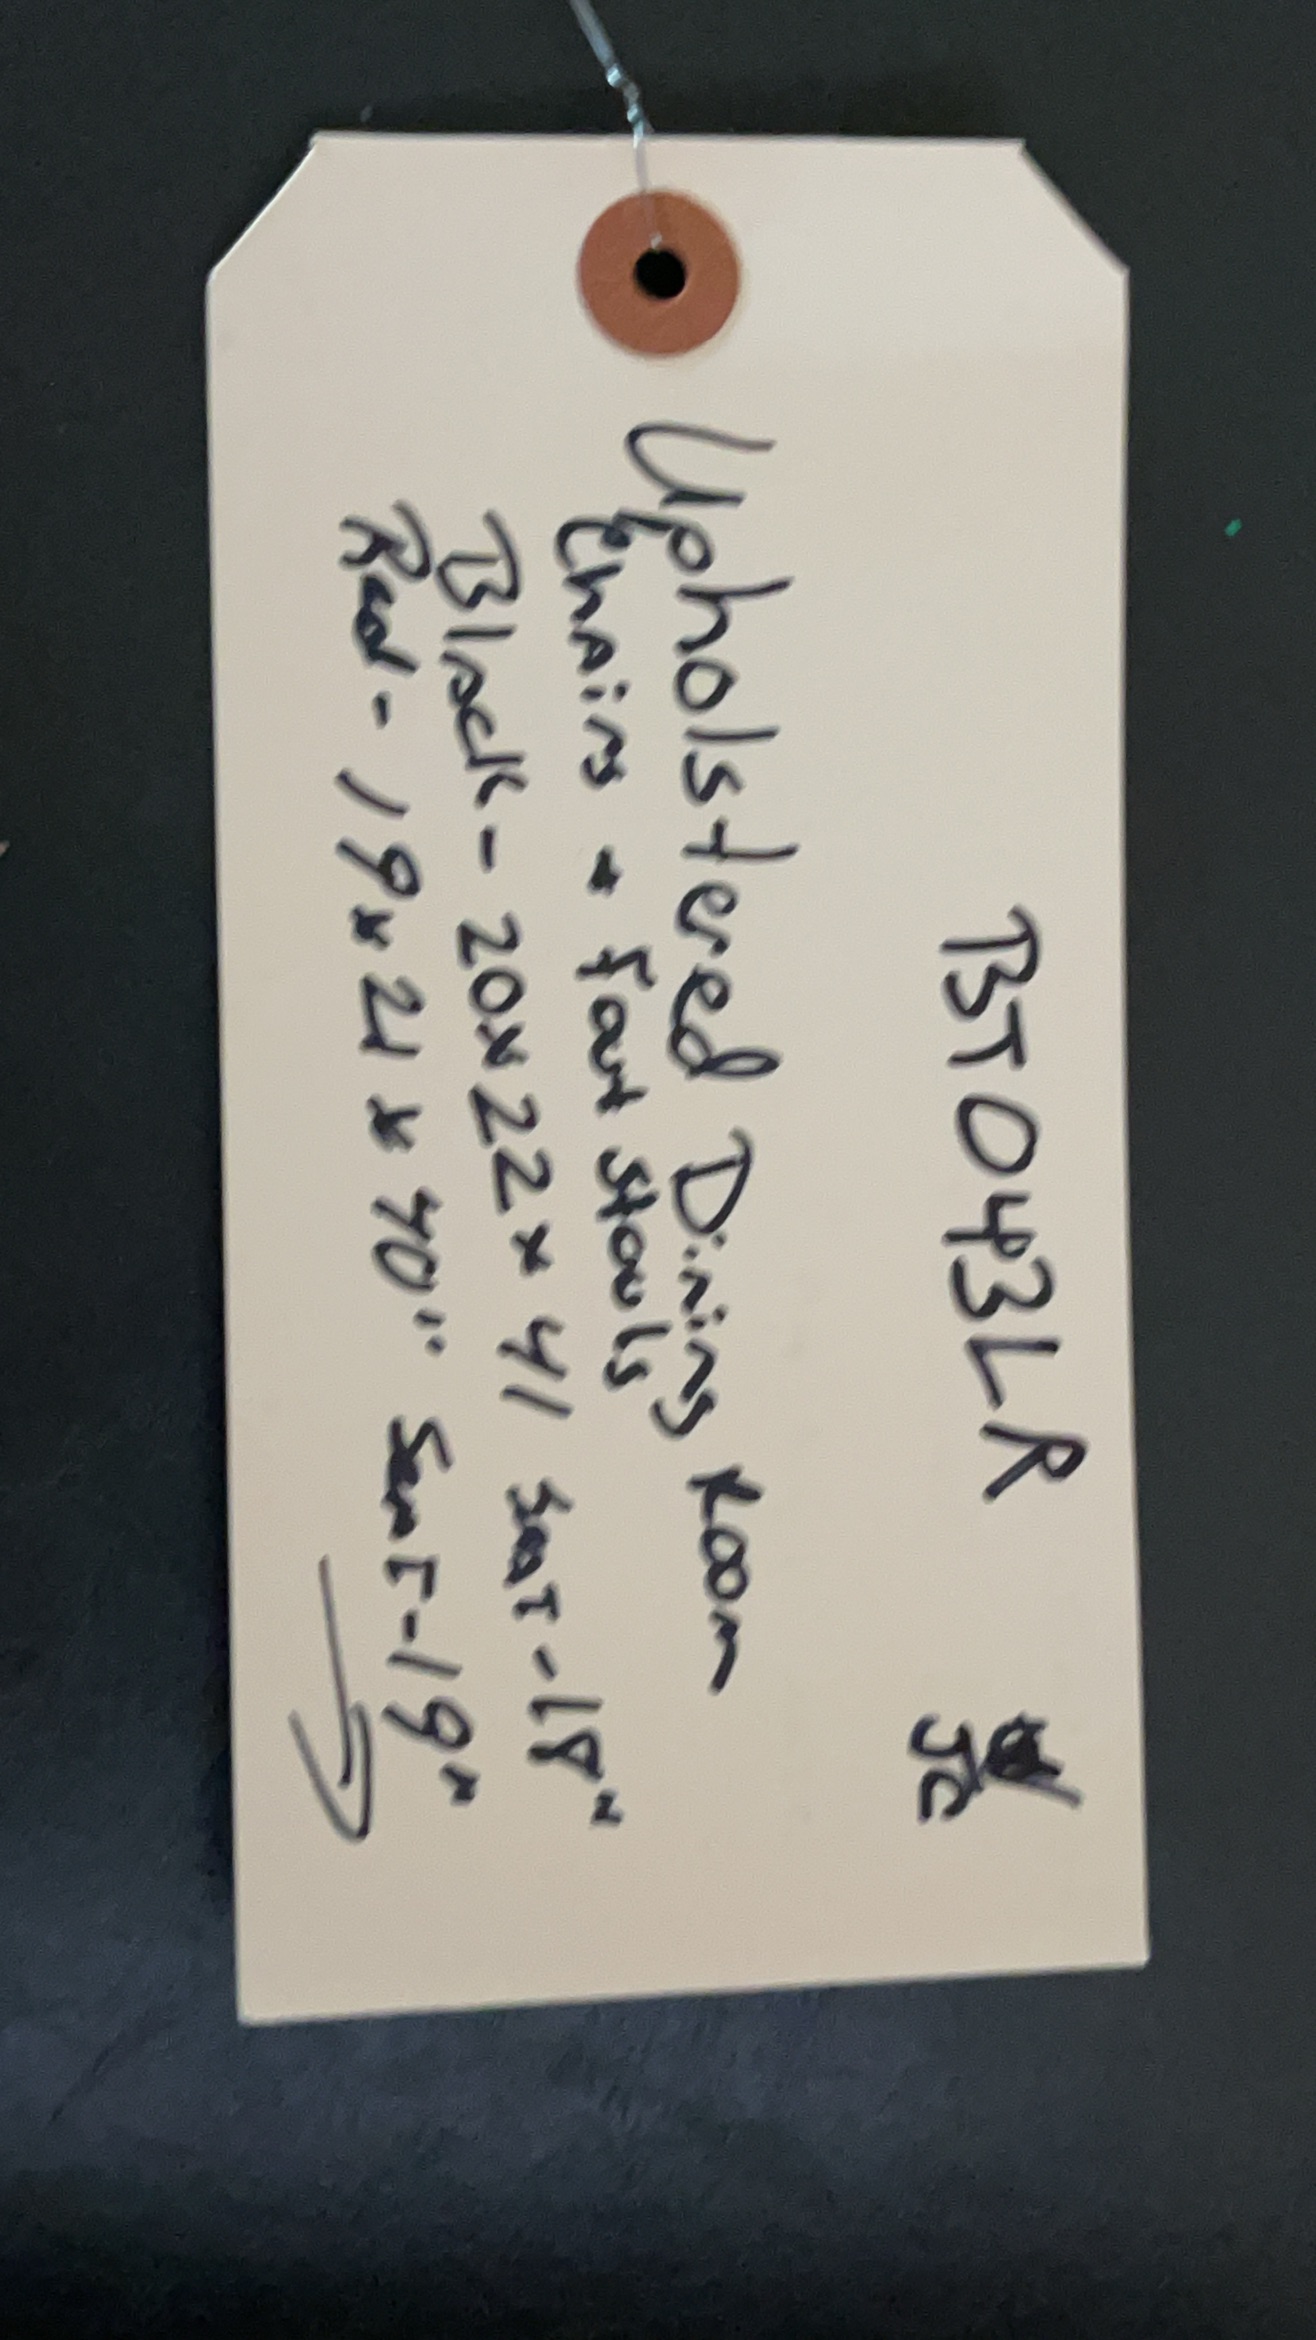 BT0493LR
JC
Upholstered Dining Room
Chairs + Foot Stools
Black - 20x22 x 41 Seat - 18"
Red - 19 x 21 x 40" Seat - 19"